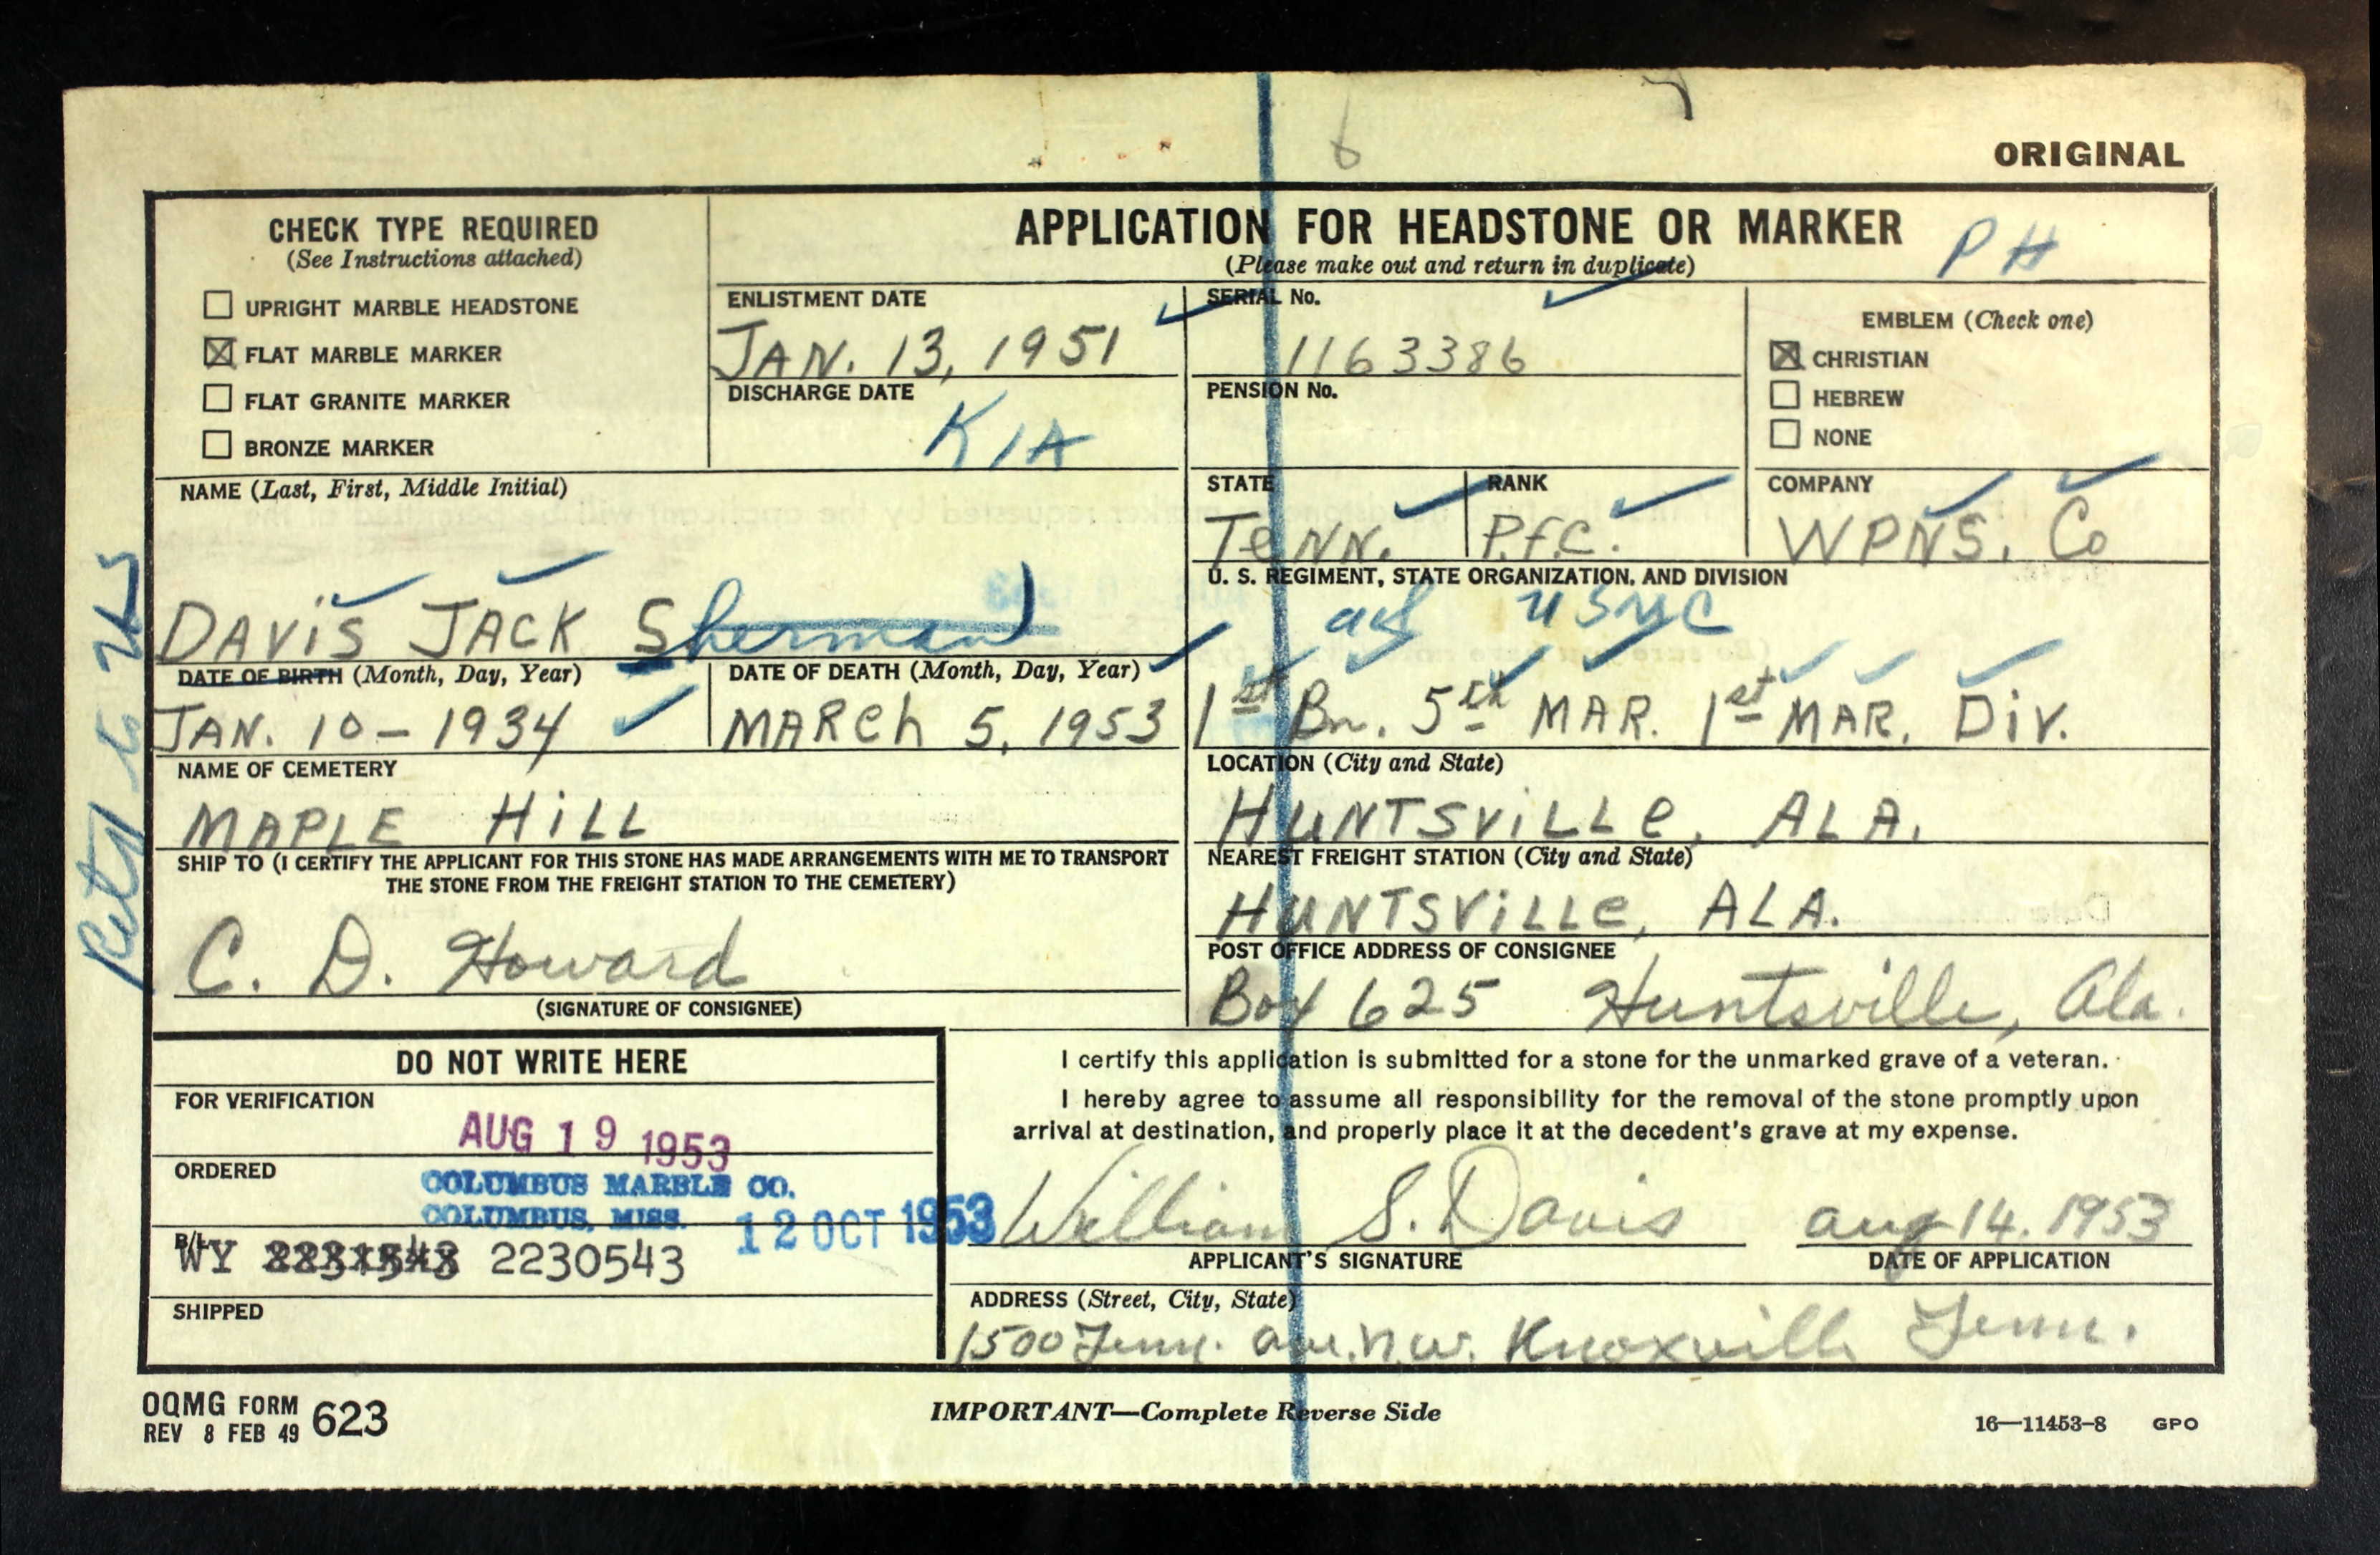 ORIGINAL
CHECK TYPE REQUIRED
(See Instructions attached)
UPRIGHT MARBLE HEADSTONE
FLAT MARBLE MARKER
FLAT GRANITE MARKER
BRONZE MARKER
APPLICATION FOR HEADSTONE OR MARKER
PH
(Please make out and return in duplicate)
ENLISTMENT DATE
JAN. 13, 1951
SERIAL No.
1163386
DISCHARGE DATE
KIA
PENSION No.
EMBLEM (Check one)
CHRISTIAN
HEBREW
NONE
NAME (Last, First, Middle Initial)
DAVIS JACK Sherman
STATE
TENN.
RANK
P.f.C.
COMPANY
WPNS. Co
U. S. REGIMENT, STATE ORGANIZATION, AND DIVISION
USMC
1st Bn. 5th MAR. 1st MAR. DIV.
DATE OF BIRTH (Month, Day, Year)
JAN. 10 - 1934
DATE OF DEATH (Month, Day, Year)
MARCH 5, 1953
NAME OF CEMETERY
MAPLE HILL
LOCATION (City and State)
HUNTSVILLE, ALA.
SHIP TO (I CERTIFY THE APPLICANT FOR THIS STONE HAS MADE ARRANGEMENTS WITH ME TO TRANSPORT
THE STONE FROM THE FREIGHT STATION TO THE CEMETERY)
C. D. Howard
(SIGNATURE OF CONSIGNEE)
NEAREST FREIGHT STATION (City and State)
HUNTSVILLE, ALA.
POST OFFICE ADDRESS OF CONSIGNEE
Box 625 Huntsville, Ala.
DO NOT WRITE HERE
FOR VERIFICATION
AUG 19 1953
ORDERED
COLUMBUS MARBLE CO.
COLUMBUS, MISS.
12 OCT 1953
B/L
WY 2230543
SHIPPED
I certify this application is submitted for a stone for the unmarked grave of a veteran.
I hereby agree to assume all responsibility for the removal of the stone promptly upon
arrival at destination, and properly place it at the decedent's grave at my expense.
William S. Davis
aug 14. 1953
APPLICANT'S SIGNATURE
DATE OF APPLICATION
ADDRESS (Street, City, State)
1500 Tenn. Ave. N.W. Knoxville Tenn.
OQMG FORM 623
REV 8 FEB 49
IMPORTANT—Complete Reverse Side
16—11453-8 GPO